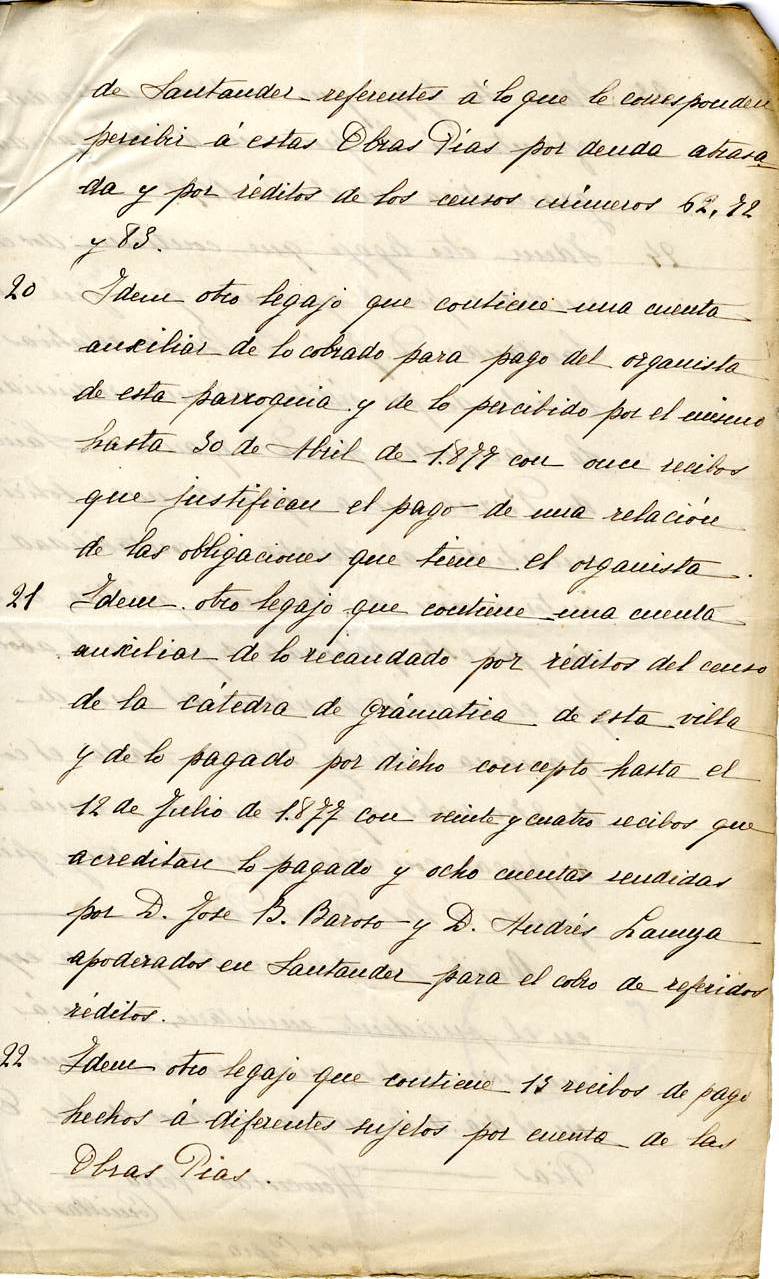 de Santander referentes á lo que le corresponden
percibir á estas Obras Pías por deuda atrasa-
da y por réditos de los censos números 62, 72
y 83.
20 Idem otro legajo que contiene una cuenta
auxiliar de lo cobrado para pago del organista
de esta parroquia y de lo percibido por el mismo
hasta 30 de Abril de 1.877 con once recibos
que justifican el pago de una relación
de las obligaciones que tiene el organista.
21 Idem otro legajo que contiene una cuenta
auxiliar de lo recaudado por réditos del censo
de la cátedra de Grámatica de esta villa
y de lo pagado por dicho concepto hasta el
12 de Julio de 1.877 con veinte y cuatro recibos que
acreditan lo pagado y ocho cuentas rendidas
por D. Jose B. Baroso y D. Andrés Lanuza
apoderados en Santander para el cobro de referidos
réditos.
22 Idem otro legajo que contiene 13 recibos de pago
hechos á diferentes sujetos por cuenta de las
Obras Pias.